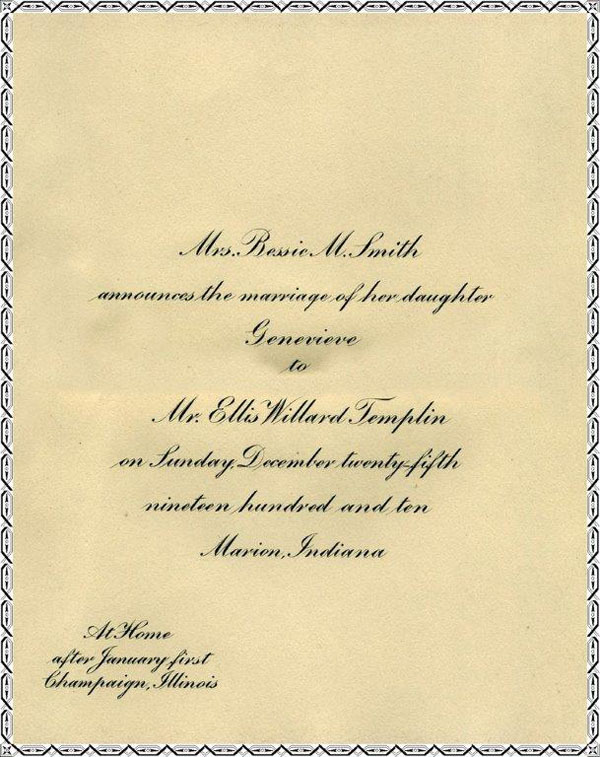 Mrs. Bessie M. Smith
announces the marriage of her daughter
Genevieve
to
Mr. Ellis Willard Templin
on Sunday, December twenty-fifth
nineteen hundred and ten
Marion, Indiana
At Home
after January first
Champaign, Illinois